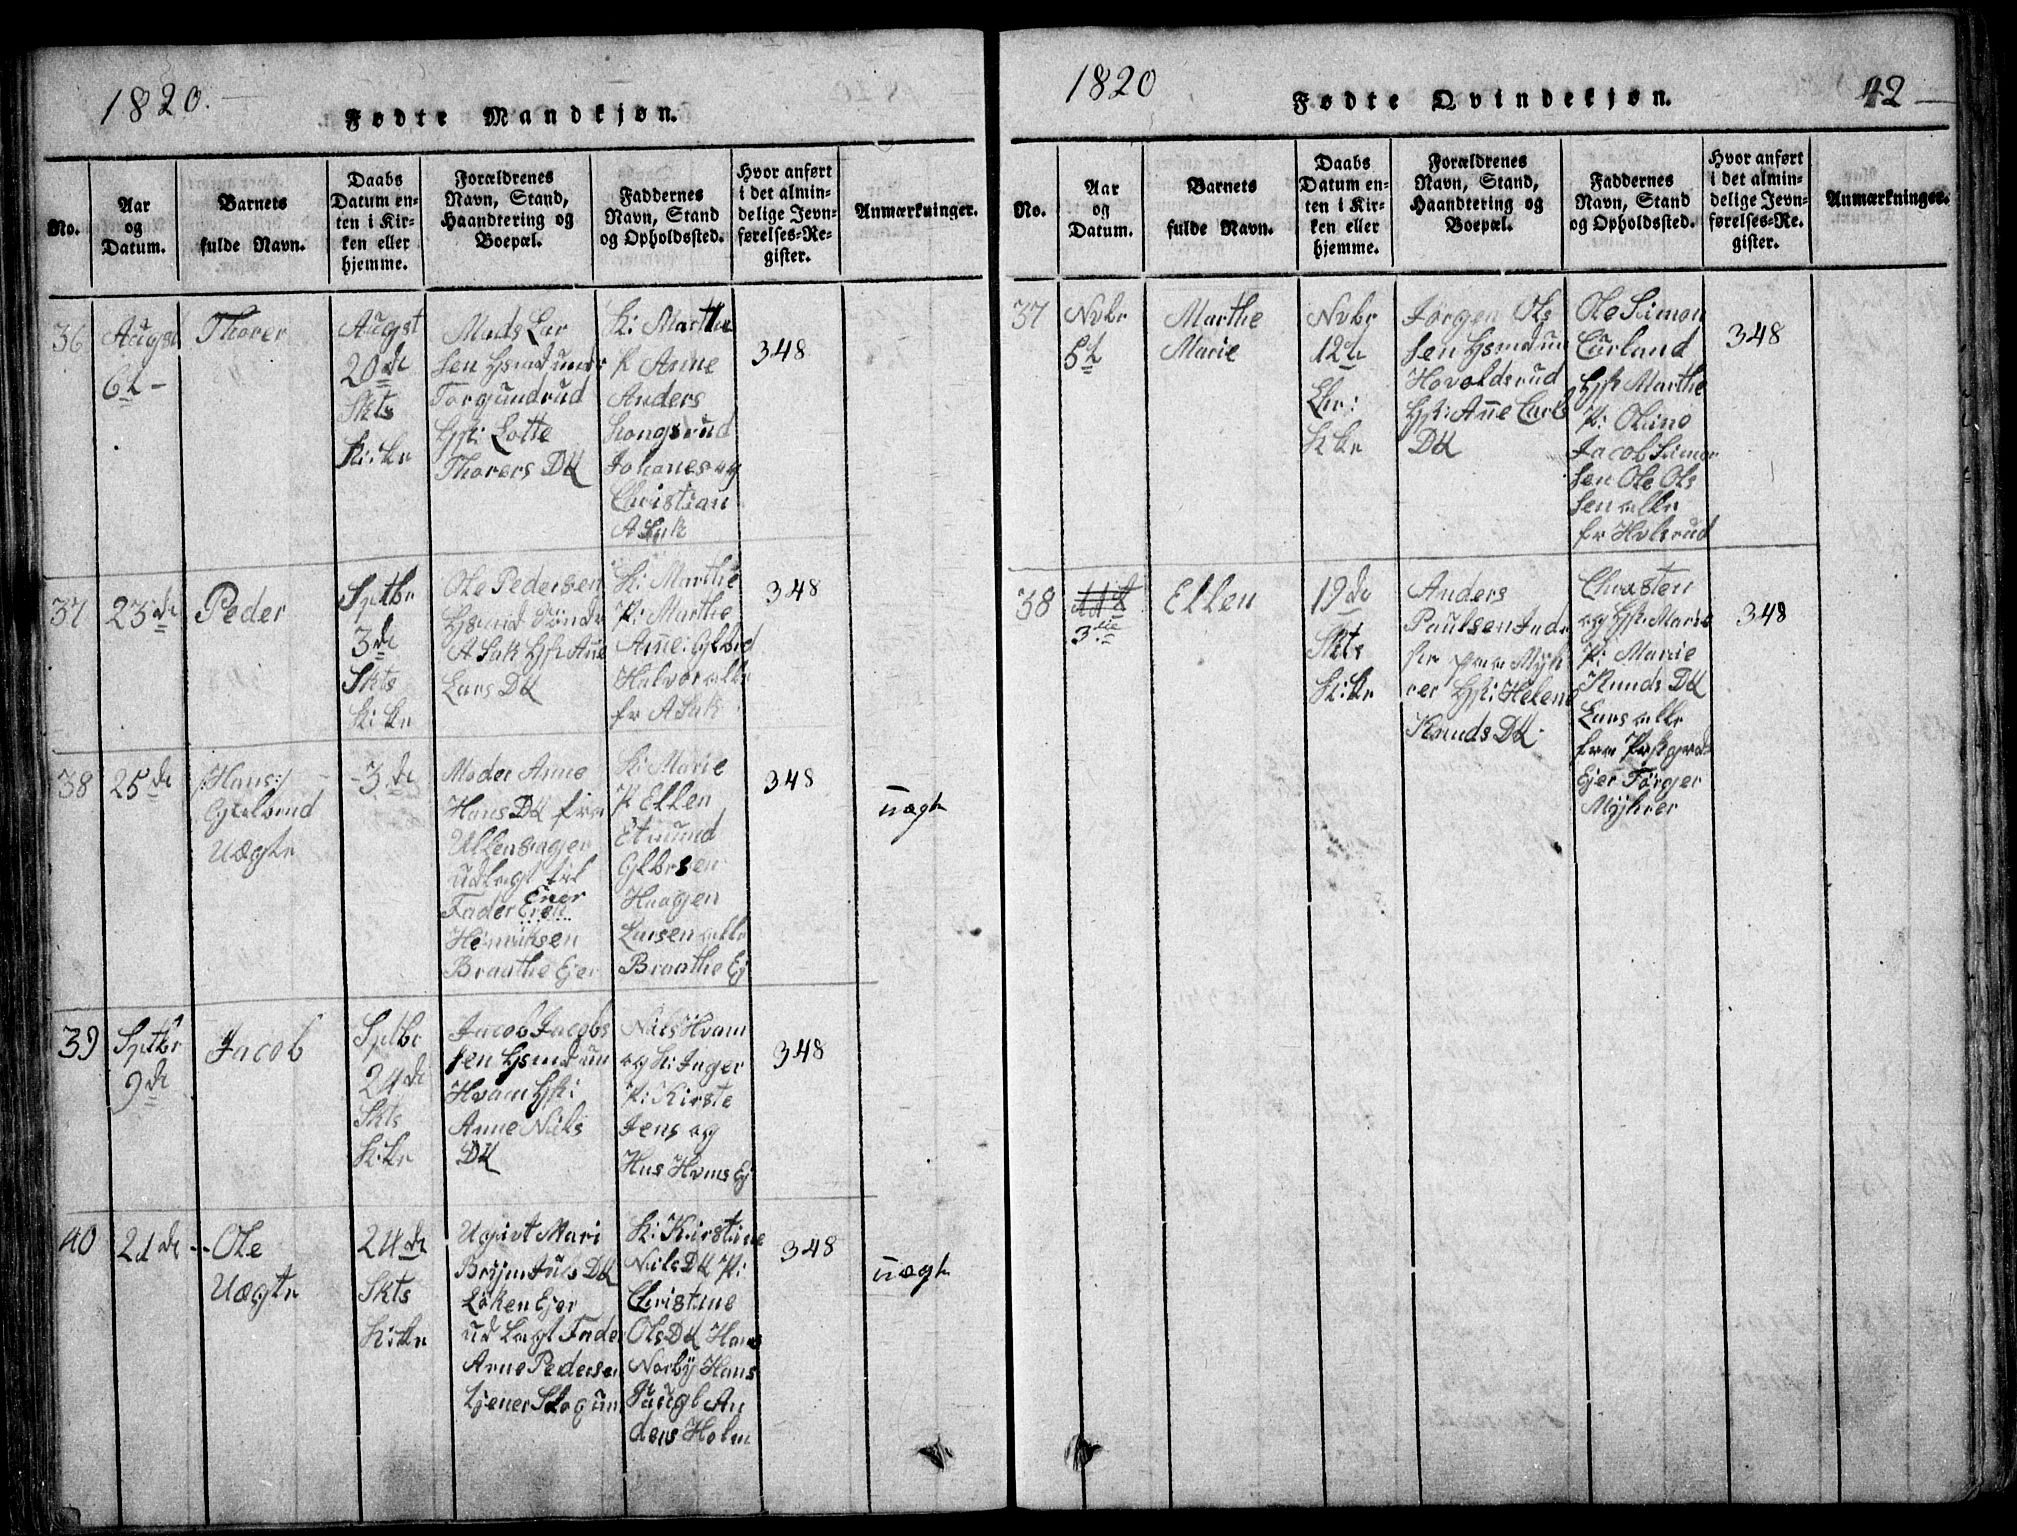 1820.
Fødte Mandkjøn.
No.
Aar
og
Datum.
Barnets
fulde Navn.
Daabs
Datum en-
ten i Kir-
ken eller
hjemme.
Forældrenes
Navn, Stand,
Haandtering og
Boepæl.
Faddernes
Navn, Stand
og Opholdssted.
Hvor anført
i det almin-
delige Jevn-
førelses-Re-
gister.
Anmærkninger.
36
Augst
6te
Thorer
Augst
20de
Skts
Kirke
Mads Lar
sen Hsmd und
Torgundrud
Hst: Lotte
Thorers DK
K: Marthe
P Anne
Anders
Kongsrud
Johanes og
Christian
Asak
348
37
23de
Peder
Sptbr
3de
Skts
Kirke
Ole Pedersen
Hsmd
Asak Hst Ane
Lars DK
K: Marthe
P: Marthe
Arne: Glbrd
Halvor alle
fr Asak
348
38
25de
Hans
Uægte
3de
Moder Anne
Hans DK fra
Ullensager
udlagt til
Fader Ener
Henriksen
Braathe Ejer
K: Marie
P Ellen
Glbrsen
Haagen
Larsen alle
Braathe Ej
348
uægt
39
Sptbr
9de
Jacob
Sptbr
24de
Skts
Kirke
Jacob Jacobs
sen Hsmd un
Hvam Hst:
Anne Niels
DK
Niels Hvam
og K: Inger
P: Kirste
Jens og
Hns Hvms Ej
348
40
21de
Ole
Uægte
24de
Skts
Kirke
Ugivt Mari
DK
Løken Ejer
ud lagt Fader
Arne Pedersen
tjener
K: Kirstine
Niels DK P:
Christine
Ols DK Hans
Norby Hans
An
ders Holm
348
uægt
1820
Fødte Qvindekjøn.
42
No.
Aar
og
Datum.
Barnets
fulde Navn.
Daabs
Datum en-
ten i Kir-
ken eller
hjemme.
Forældrenes
Navn, Stand,
Haandtering og
Boepæl.
Faddernes
Navn, Stand
og Opholdssted.
Hvor anført
i det almin-
delige Jevn-
førelses-Re-
gister.
Anmærkninger.
37
Nvbr
5te
Marthe
Marie
Nvbr
12te
Kke
Jørgen Ols
sen Hsmd un
Hovoldsrud
Hst: Ane Carls
DK
Ole Simon
Curland
Hst Marthe
P: Oline
Jacob Simon
sen Ole Ols
sen alle
fr Holsrud
348
38
3die
Ellen
19de
Skts
Kirke
Anders
Paulsen Inder
ste paa Myh
rer Hst: Helene
Knuds DK
Christen
og Hst: Marie
P: Marie
Knuds DK
Lars alle
fra
Ejer Jørger
Myhrer
348